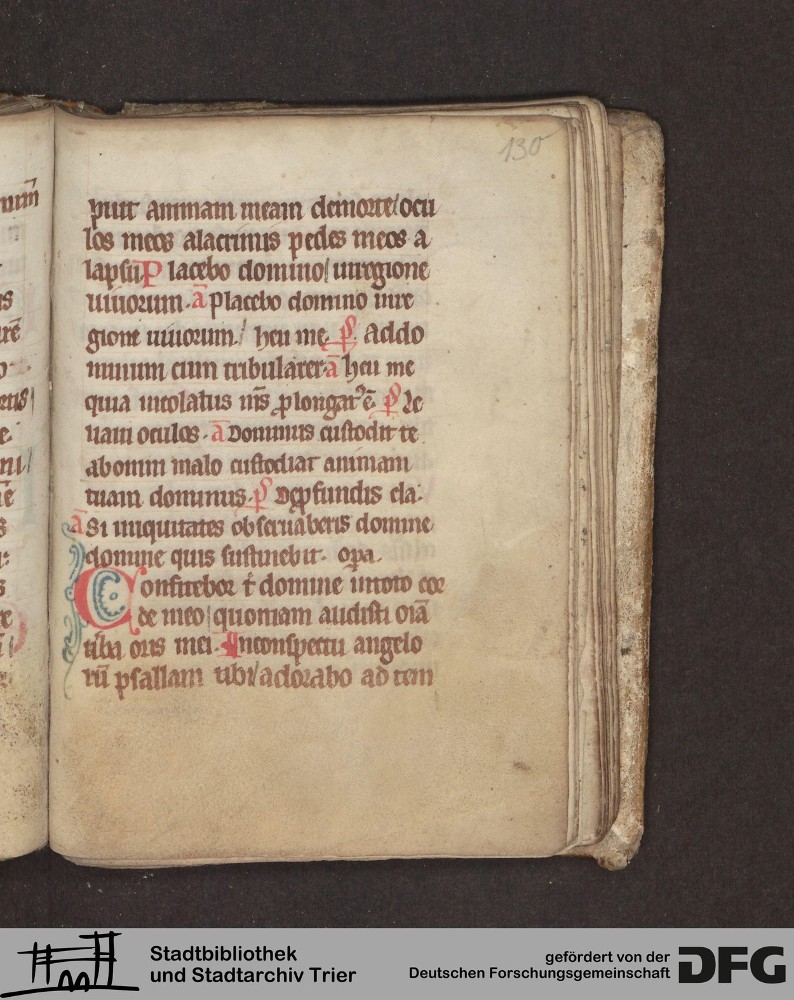 130
puit animam meam demorte/ocu
los meos alacrimis pedes meos a
lapsu P lacebo domino/inregione
uiuorum. a̅ Placebo domino inre
gione uiuorum./ heu me. p̅s̅. Addo
minum cum tribularer a̅ heu me
quia incolatus m̅s ꝓlongatꝰ ē. p̅s̅ Le
uaui oculos. a̅ Dominus custodit te
abomni malo custodiat animam
tuam dominus. p̅s̅ Deꝓfundis cla:
a̅ Si iniquitates obseruaberis domine
domine quis sustinebit. op̅a.
Confitebor t̅ domine intoto cor
de meo/quoniam audisti oi̅a
uba oris mei. Inconspectu angelo
ru̅ psallam tibi/adorabo ad tem
Stadtbibliothek
und Stadtarchiv Trier
gefördert von der
Deutschen Forschungsgemeinschaft
DFG